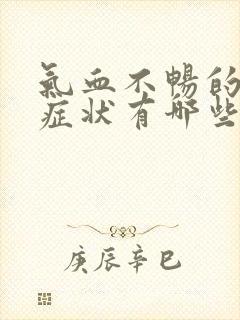 氣血不暢的
症状有哪些
庚辰辛巳